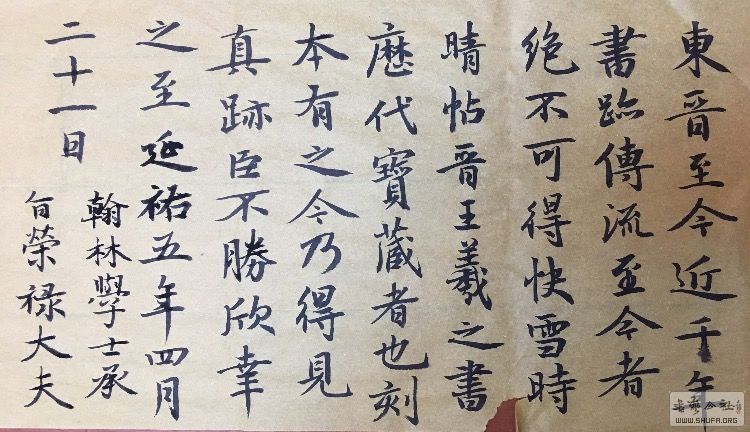 東晋至今近千年
書跡傳流至今者
絶不可得快雪時
晴帖晋王羲之書
歷代寶藏者也刻
本有之今乃得見
真跡臣不勝欣幸
之至延祐五年四月
二十一日
翰林學士承
旨榮禄大夫
WWW.SHUFA.ORG